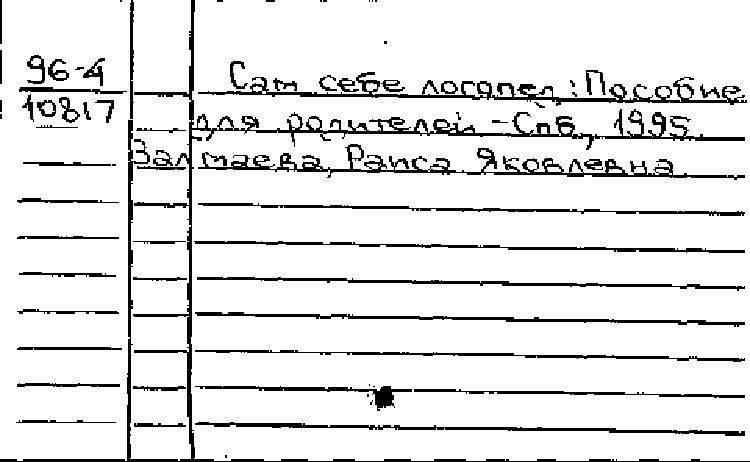 96-4
10817
Сам себе логопед: Пособие
для родителей - Спб, 1995.
Залмаева, Раиса Яковлевна